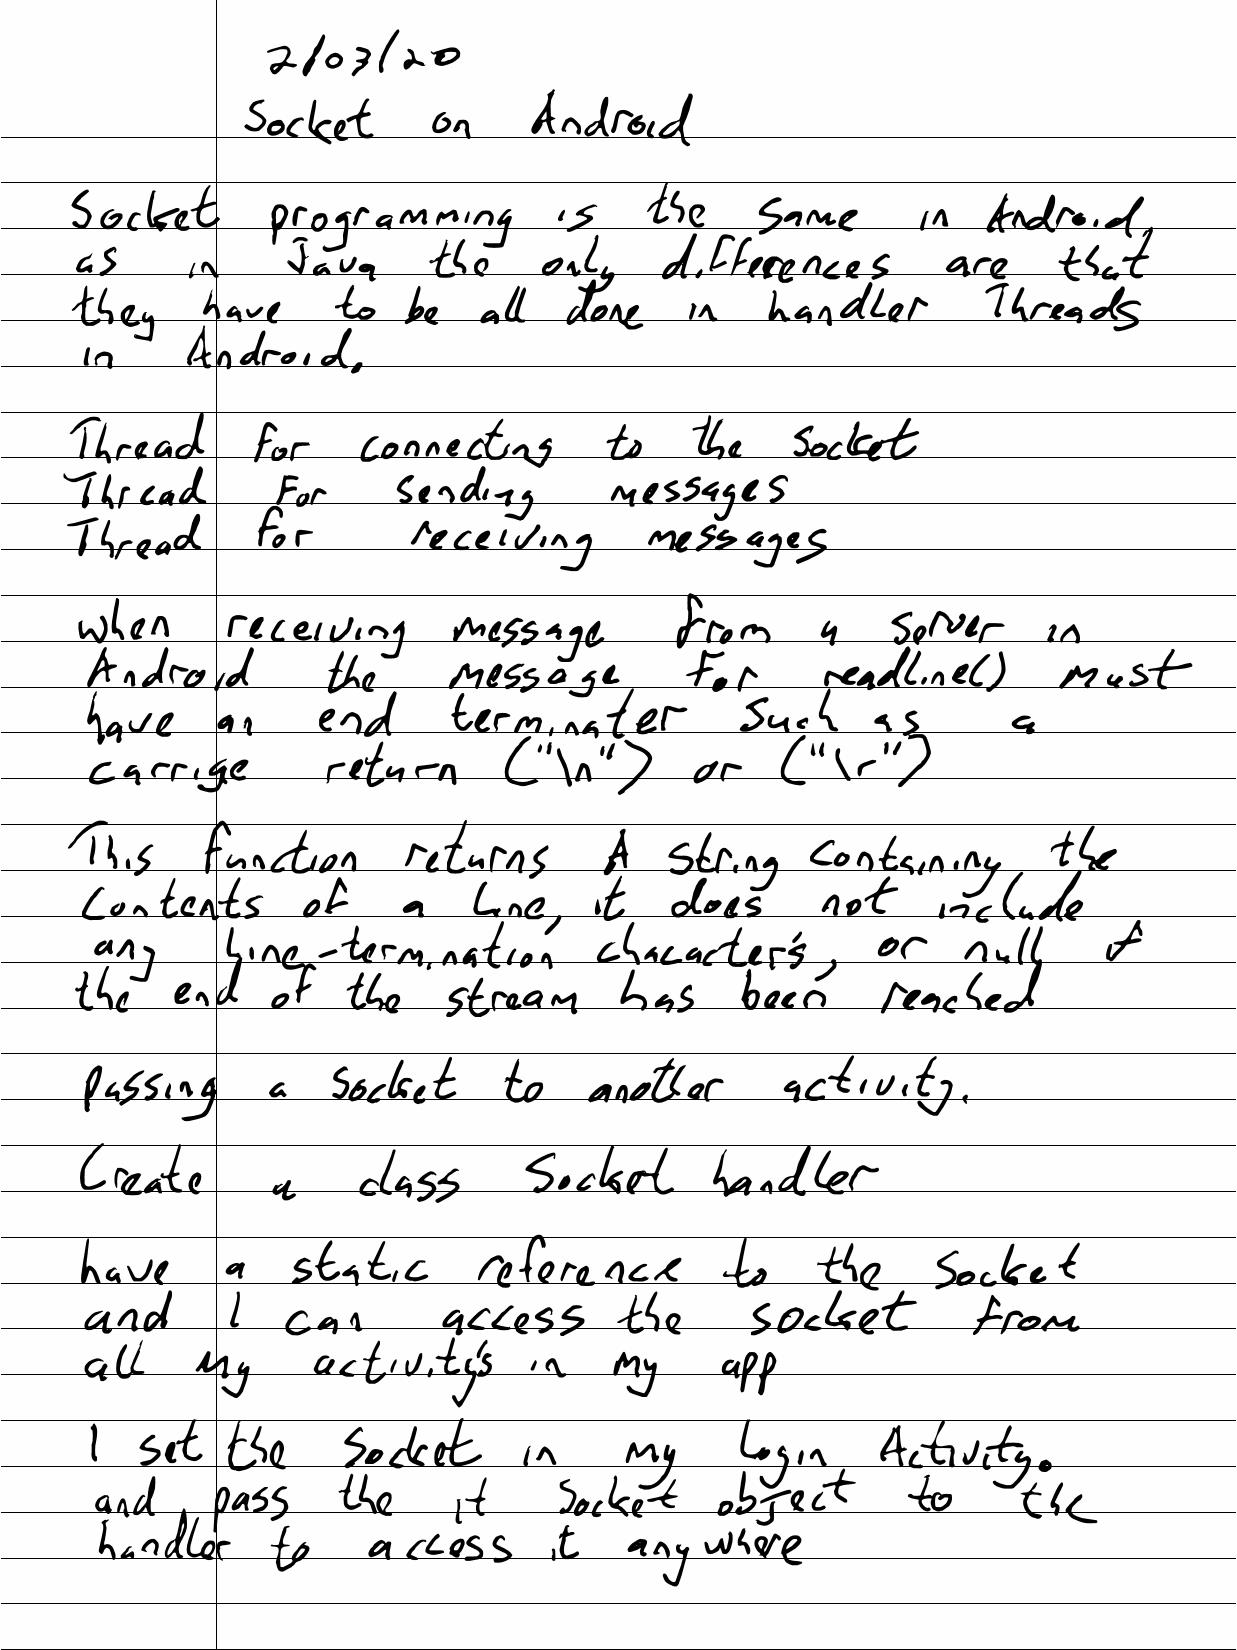 2/03/20
Socket on Android
Socket programming is the same in Android,
as in Java the only differences are that
they have to be all done in handler Threads
in Android.
Thread for connecting to the Socket
Thread For sending messages
Thread for receiving messages
when receiving message from a server in
Android the message for readline() must
have an end terminater such as a
carrige return ("\n") or ("\r")
This function returns A string containing the
contents of a line, it does not include
any line-termination character's, or null if
the end of the stream has been reached
passing a socket to another activity.
Create a class Socket handler
have a static reference to the Socket
and I can access the socket from
all my activity's in my app
I set the Socket in my Login Activity.
and pass the it Socket object to the
handler to access it anywhere